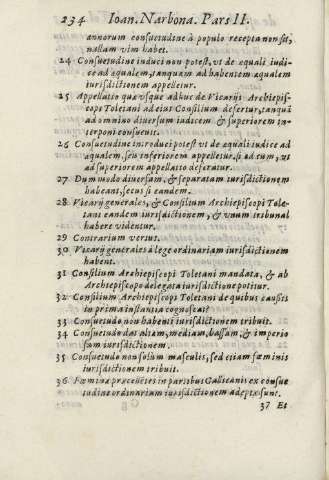 234 Ioan. Narbona. Pars II.
annorum consuetudine à populo recepta non sit,
nullam vim habet.
24 Consuetudine induci non potest, vt de æquali iudi-
ce ad æqualem, tanquam ad habentem æqualem
iurisdictionem appelletur.
25 Appellatio quæ vsque adhuc de Vicarij Archiepis-
copi Toletani ad eius Consilium defertur, tanquã
ad omnino diuersum iudicem & superiorem in-
terponi consueuit.
26 Consuetudine introduci potest vt de æquali iudice ad
æqualem, seu inferiorem appelletur, si ad eum, vt
ad superiorem appellatio deferatur.
27 Dummodo diuersam, & separatam iurisdictionem
habeant, secus si eandem.
28 Vicarij generales, & Consilium Archiepiscopi Tole-
tani eandem iurisdictionem, & vnum tribunal
habere videntur.
29 Contrarium verius.
30 Vicarij generales à lege ordinariam iurisdictionem
habent.
31 Consilium Archiepiscopi Toletani mandata, & ab
Archiepiscopo delegata iurisdictione potitur.
32 Consilium Archiepiscopi Toletani de quibus causis
in prima instantia cognoscat?
33 Consuetudo non habenti iurisdictionem tribuit.
34 Consuetudo dat altam, mediam, bassam, & imperio
sum iurisdictionem.
35 Consuetudo non solum masculis, sed etiam fœminis
iurisdictionem tribuit.
36 Fœminæ præcellētes in partibus Gallicanis ex consue
tudine ordinarium iurisdictionem adeptæ sunt.
37 Et